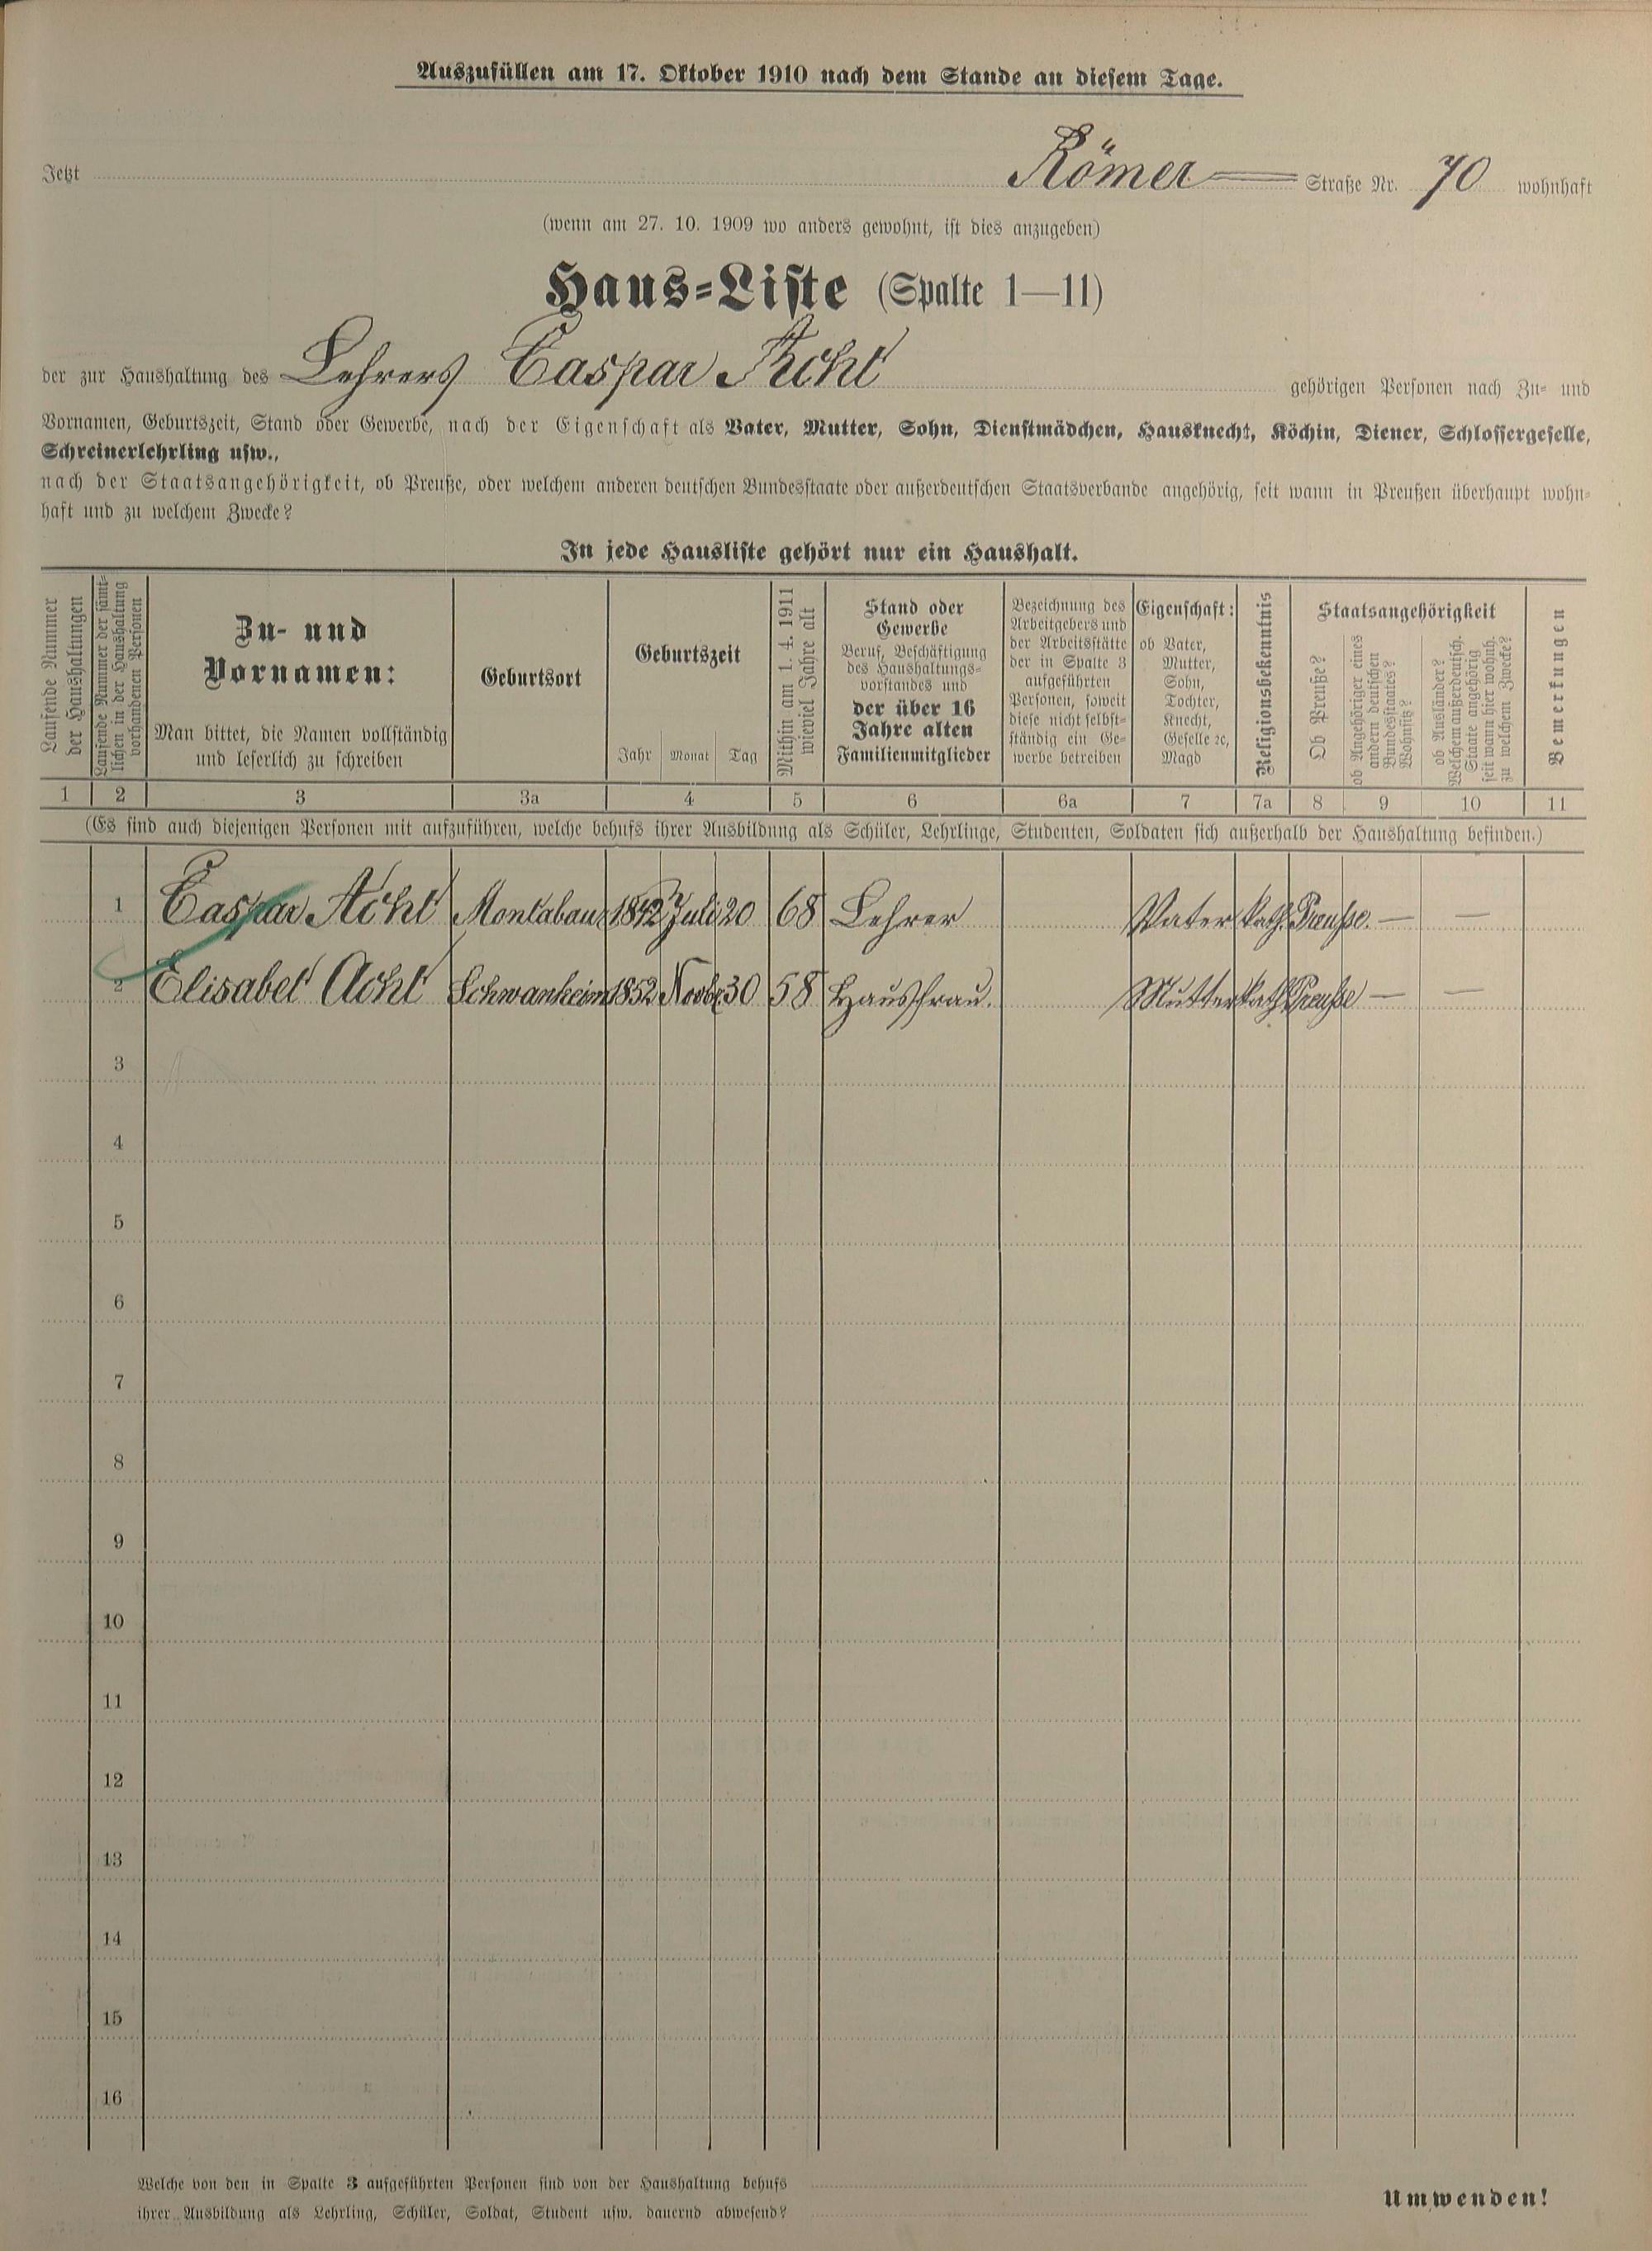 Auszufüllen am 17. Oktober 1910 nach dem Stande an diesem Tage.
Jetzt Römer Straße Nr. 70 wohnhaft
(wenn am 27. 10. 1909 wo anders gewohnt, ist dies anzugeben)
Haus-Liste (Spalte 1—11)
der zur Haushaltung des Lehrers Caspar Acht gehörigen Personen nach Zu- und
Vornamen, Geburtszeit, Stand oder Gewerbe, nach der Eigenschaft als Vater, Mutter, Sohn, Dienstmädchen, Hausknecht, Köchin, Diener, Schlossergeselle,
Schreinerlehrling usw.,
nach der Staatsangehörigkeit, ob Preuße, oder welchem anderen deutschen Bundesstaate oder außerdeutschen Staatsverbande angehörig, seit wann in Preußen überhaupt wohn-
haft und zu welchem Zwecke?
In jede Hausliste gehört nur ein Haushalt.
Laufende Nummer
der Haushaltungen
Laufende Nummer der sämt-
lichen in der Haushaltung
vorhandenen Personen
Zu- und
Vornamen:
Man bittet, die Namen vollständig
und leserlich zu schreiben
Geburtsort
Geburtszeit
Jahr Monat Tag
Mithin am 1. 4. 1911
wieviel Jahre alt
Stand oder
Gewerbe
Beruf, Beschäftigung
des Haushaltungs-
vorstandes und
der über 16
Jahre alten
Familienmitglieder
Bezeichnung des
Arbeitgebers und
der Arbeitsstätte
der in Spalte 3
aufgeführten
Personen, soweit
diese nicht selbst-
ständig ein Ge-
werbe betreiben
Eigenschaft:
ob Vater,
Mutter,
Sohn,
Tochter,
Knecht,
Geselle ꝛc,
Magd
Religionsbekenntnis
Staatsangehörigkeit
Ob Preuße?
ob Angehöriger eines
andern deutschen
Bundesstaates?
Wohnsitz?
ob Ausländer?
Welchem außerdeutsch.
Staate angehörig
seit wann hier wohnh.
zu welchem Zwecke?
Bemerkungen
1 2 3 3a 4 5 6 6a 7 7a 8 9 10 11
(Es sind auch diejenigen Personen mit aufzuführen, welche behufs ihrer Ausbildung als Schüler, Lehrlinge, Studenten, Soldaten sich außerhalb der Haushaltung befinden.)
1 Caspar Acht Montabaur 1842 Juli 20 68 Lehrer Vater kath. Preuße. — —
2 Elisabet Acht Schwanheim 1852 Novbr 30 58 Hausfrau. Mutter kath Preuße — —
3
4
5
6
7
8
9
10
11
12
13
14
15
16
Welche von den in Spalte 3 aufgeführten Personen sind von der Haushaltung behufs
ihrer Ausbildung als Lehrling, Schüler, Soldat, Student usw. dauernd abwesend?
Umwenden!